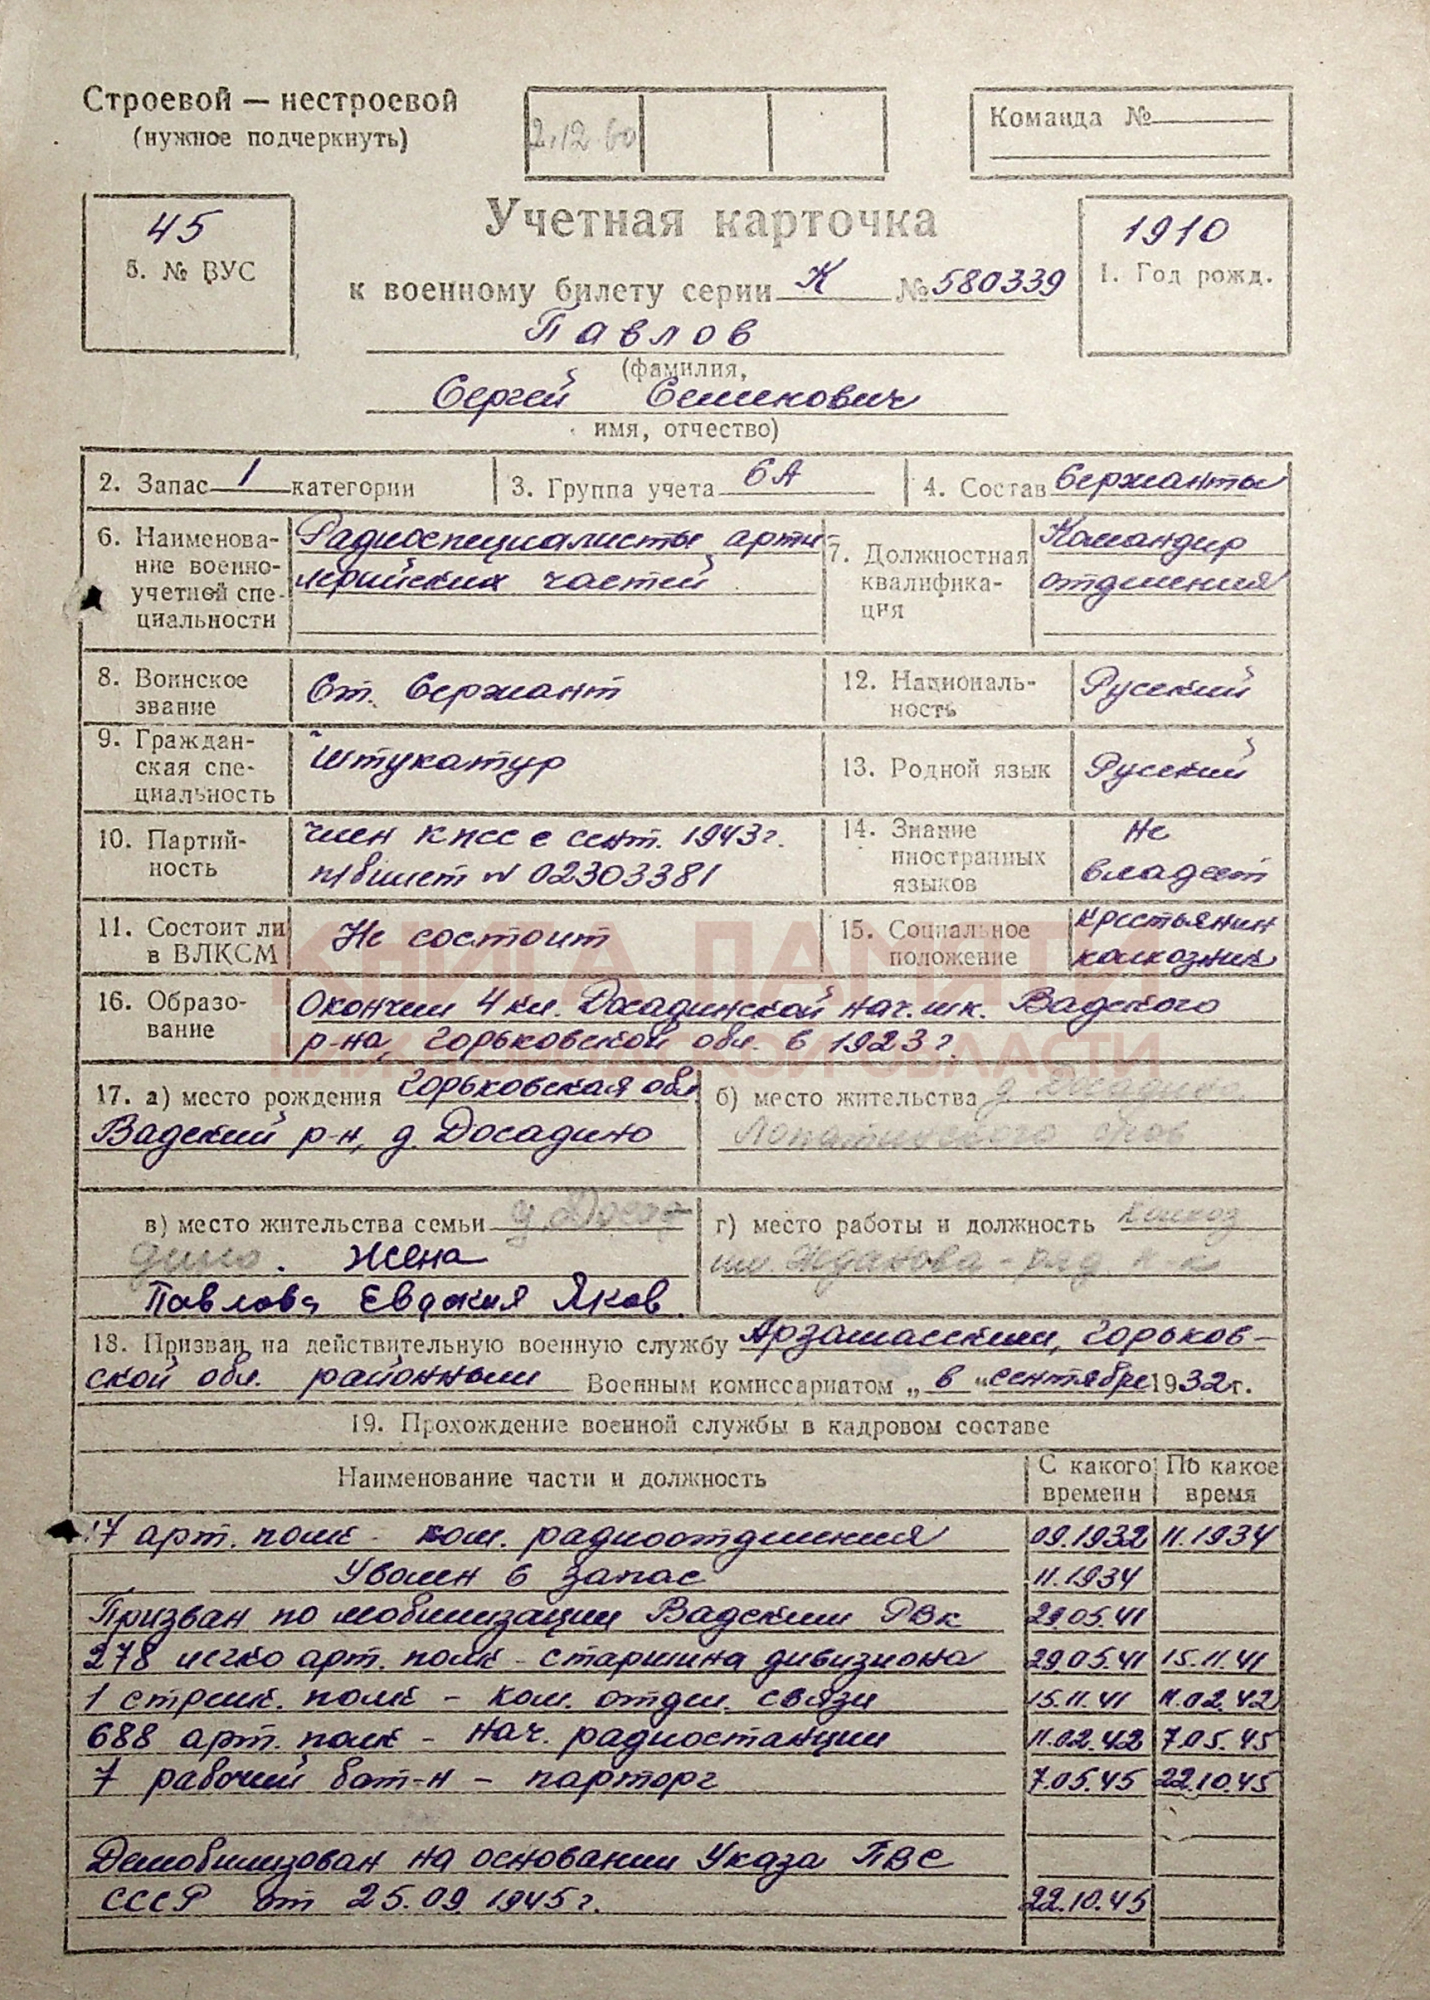 Строевой — нестроевой
(нужное подчеркнуть)
2.12.60
Команда №
45
5. № ВУС
Учетная карточка
1910
1. Год рожд.
к военному билету серии К № 580339
Павлов
(фамилия,
Сергей Семенович
имя, отчество)
2. Запас 1 категории
3. Группа учета 6А
4. Состав Сержанты
6. Наименова-
ние военно-
учетной спе-
циальности
Радиоспециалисты арти-
лерийских частей
7. Должностная
квалифика-
ция
Командир
отделения
8. Воинское
звание
Ст. Сержант
12. Националь-
ность
Русский
9. Граждан-
ская спе-
циальность
Штукатур
13. Родной язык
Русский
10. Партий-
ность
член КПСС с сент. 1943 г.
п/билет № 02303381
14. Знание
иностранных
языков
Не
владеет
11. Состоит ли
в ВЛКСМ
Не состоит
15. Социальное
положение
крестьянин
колхозник
КНИГА ПАМЯТИ
НИЖЕГОРОДСКОЙ ОБЛАСТИ
16. Образо-
вание
Окончил 4 кл. Досадинской нач. шк. Вадского
р-на, Горьковской обл. в 1923 г.
17. а) место рождения Горьковская обл
Вадский р-н, д. Досадино
б) место жительства д. Досадино
Лопатинского
в) место жительства семьи д. Досад
дино. Жена
Павлова Евдокия Яков.
г) место работы и должность Колхоз
им. Жданова - ряд. к-к
18. Призван на действительную военную службу Арзамасским, Горьков-
ской обл. районным Военным комиссариатом „ в “ сентябре 1932 г.
19. Прохождение военной службы в кадровом составе
Наименование части и должность
С какого времени
По какое время
17 арт. полк - ком. радиоотделения 09.1932 11.1934
Уволен в запас 11.1934
Призван по мобилизации Вадским РВК 29.05.41
278 легко арт. полк - старшина дивизиона 29.05.41 15.11.41
1 стрелк. полк - ком. отдел. связи 15.11.41 11.02.42
688 арт. полк - нач. радиостанции 11.02.42 7.05.45
7 рабочий бат-н - парторг 7.05.45 22.10.45
Демобилизован на основании Указа ПВС
СССР от 25.09.1945 г. 22.10.45